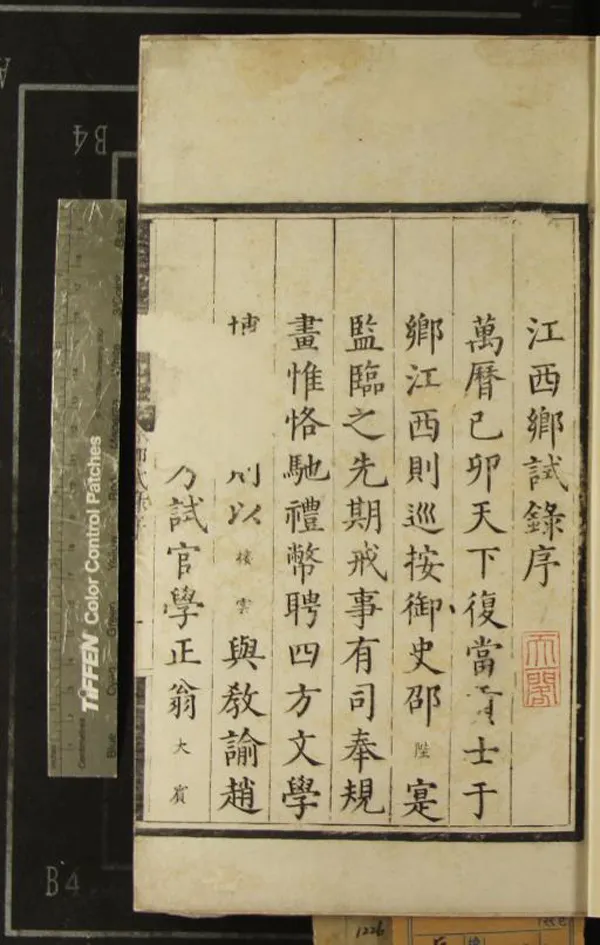 江西鄉試錄序
萬曆己卯天下復當貢士于
鄉江西則巡按御史邵陛寔
監臨之先期戒事有司奉規
畫惟恪馳禮幣聘四方文學
博 以棲雲與教諭趙
試官學正翁大賓
天一閣
TIFFEN Color Control Patches
B4
B4
1226